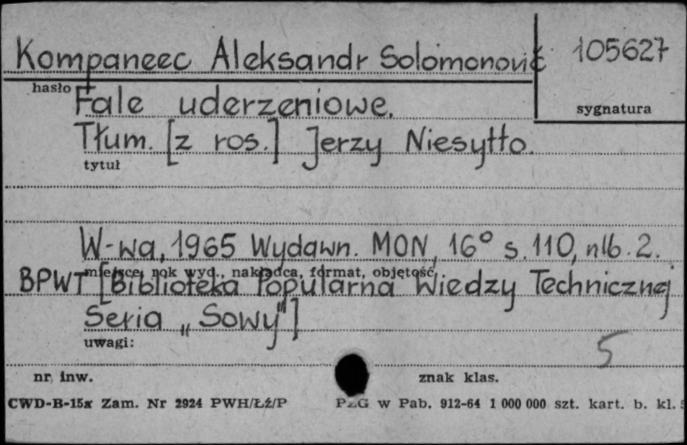 Kompaneec Aleksandr Solomonovič 105627
hasło
Fale uderzeniowe.
sygnatura
Tłum. [z ros.] Jerzy Niesytto.
tytuł
W-wa, 1965 Wydawn. MON, 16° s. 110, nlb. 2.
miejsce, rok wyd., nakładca, format, objętość
BPWT [Biblioteka Popularna Wiedzy Technicznej
Seria „Sowy"]
uwagi:
5
nr. inw. znak klas.
CWD-B-15x Zam. Nr 2924 PWH/ŁŻ/P PZG w Pab. 912-64 1 000 000 szt. kart. b. kl. 5